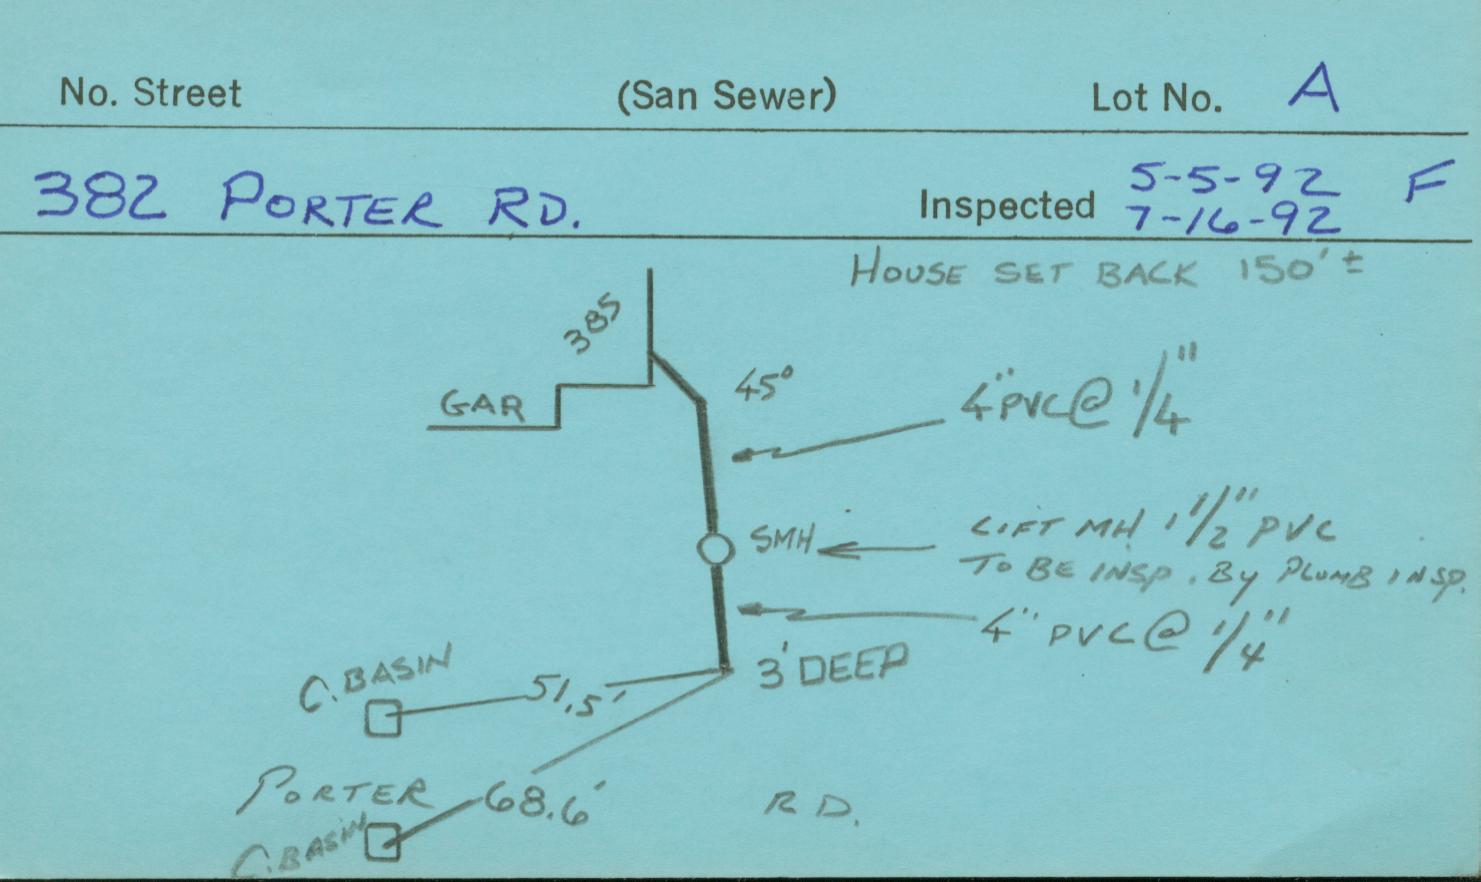 No. Street (San Sewer) Lot No. A
382 PORTER RD. Inspected 5-5-92 F
7-16-92
HOUSE SET BACK 150'±
385
45°
GAR
4" PVC @ 1/4"
SMH
LIFT MH 1 1/2" PVC
TO BE INSP. BY PLUMB INSP.
4" PVC @ 1/4"
C. BASIN
51.5'
3' DEEP
PORTER RD.
68.6'
C. BASIN